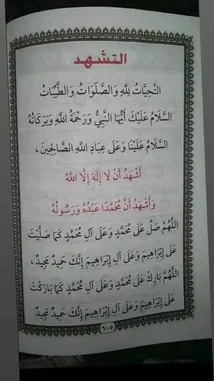 التشهد
التَّحِيَّاتُ لِلَّهِ وَالصَّلَوَاتُ وَالطَّيِّبَاتُ
السَّلَامُ عَلَيْكَ أَيُّهَا النَّبِيُّ وَرَحْمَةُ اللَّهِ وَبَرَكَاتُهُ
السَّلَامُ عَلَيْنَا وَعَلَى عِبَادِ اللَّهِ الصَّالِحِينَ،
أَشْهَدُ أَنْ لَا إِلَهَ إِلَّا اللَّهُ
وَأَشْهَدُ أَنَّ مُحَمَّدًا عَبْدُهُ وَرَسُولُهُ
اللَّهُمَّ صَلِّ عَلَى مُحَمَّدٍ وَعَلَى آلِ مُحَمَّدٍ كَمَا صَلَّيْتَ
عَلَى إِبْرَاهِيمَ وَعَلَى آلِ إِبْرَاهِيمَ إِنَّكَ حَمِيدٌ مَجِيدٌ،
اللَّهُمَّ بَارِكْ عَلَى مُحَمَّدٍ وَعَلَى آلِ مُحَمَّدٍ كَمَا بَارَكْتَ
عَلَى إِبْرَاهِيمَ وَعَلَى آلِ إِبْرَاهِيمَ إِنَّكَ حَمِيدٌ مَجِيدٌ
٦٠٥